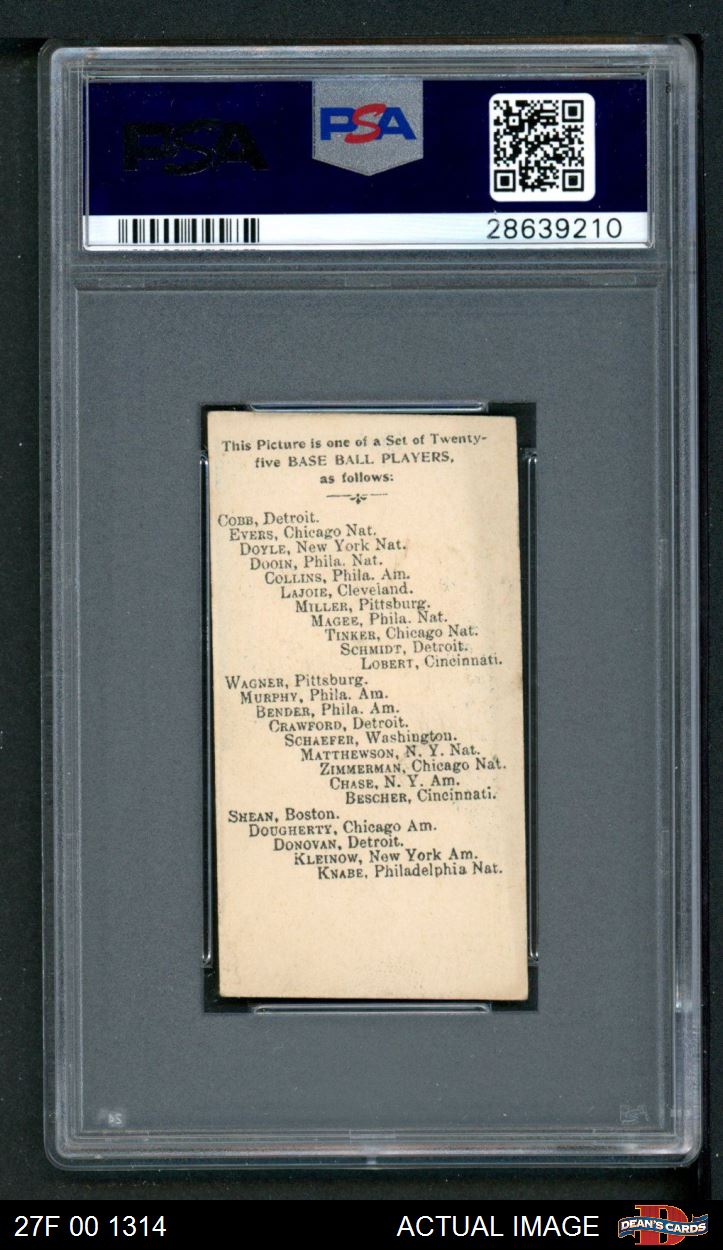 PSA
PSA
28639210
This Picture is one of a Set of Twenty-
five BASE BALL PLAYERS,
as follows:
COBB, Detroit.
EVERS, Chicago Nat.
DOYLE, New York Nat.
DOOIN, Phila. Nat.
COLLINS, Phila. Am.
LAJOIE, Cleveland.
MILLER, Pittsburg.
MAGEE, Phila. Nat.
TINKER, Chicago Nat.
SCHMIDT, Detroit.
LOBERT, Cincinnati.
WAGNER, Pittsburg.
MURPHY, Phila. Am.
BENDER, Phila. Am.
CRAWFORD, Detroit.
SCHAEFER, Washington.
MATTHEWSON, N. Y. Nat.
ZIMMERMAN, Chicago Nat.
CHASE, N. Y. Am.
BESCHER, Cincinnati.
SHEAN, Boston.
DOUGHERTY, Chicago Am.
DONOVAN, Detroit.
KLEINOW, New York Am.
KNABE, Philadelphia Nat.
PSA
27F 00 1314
ACTUAL IMAGE
DEAN'S CARDS